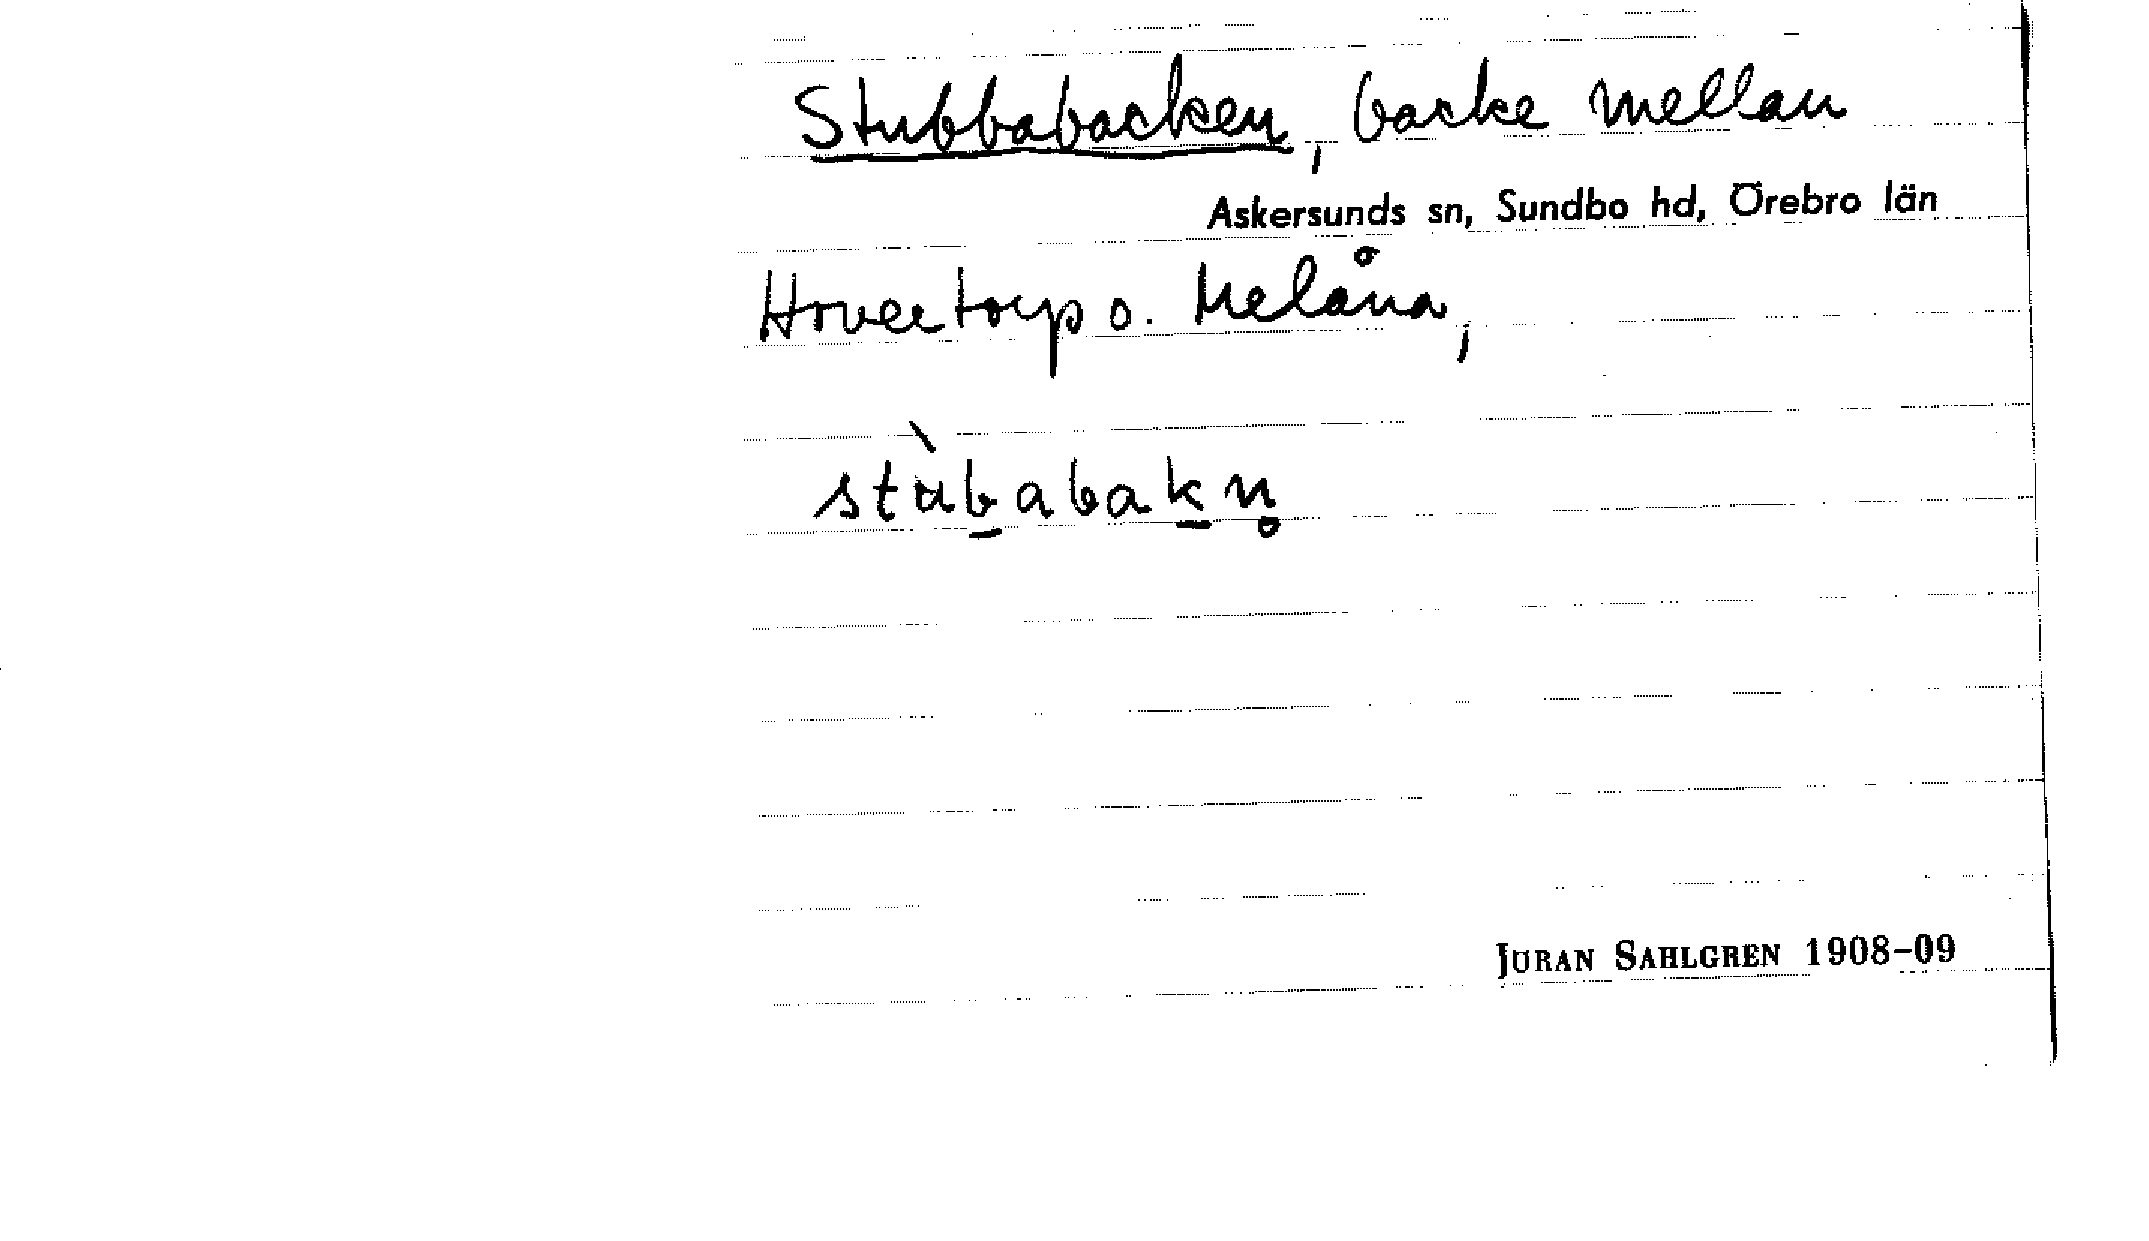 Stubbabacken, backe mellan
Askersunds sn, Sundbo hd, Örebro län
Hovertorp o. Melåna,
stu̇̀b̲abak̲n̥
JÖRAN SAHLGREN 1908–09